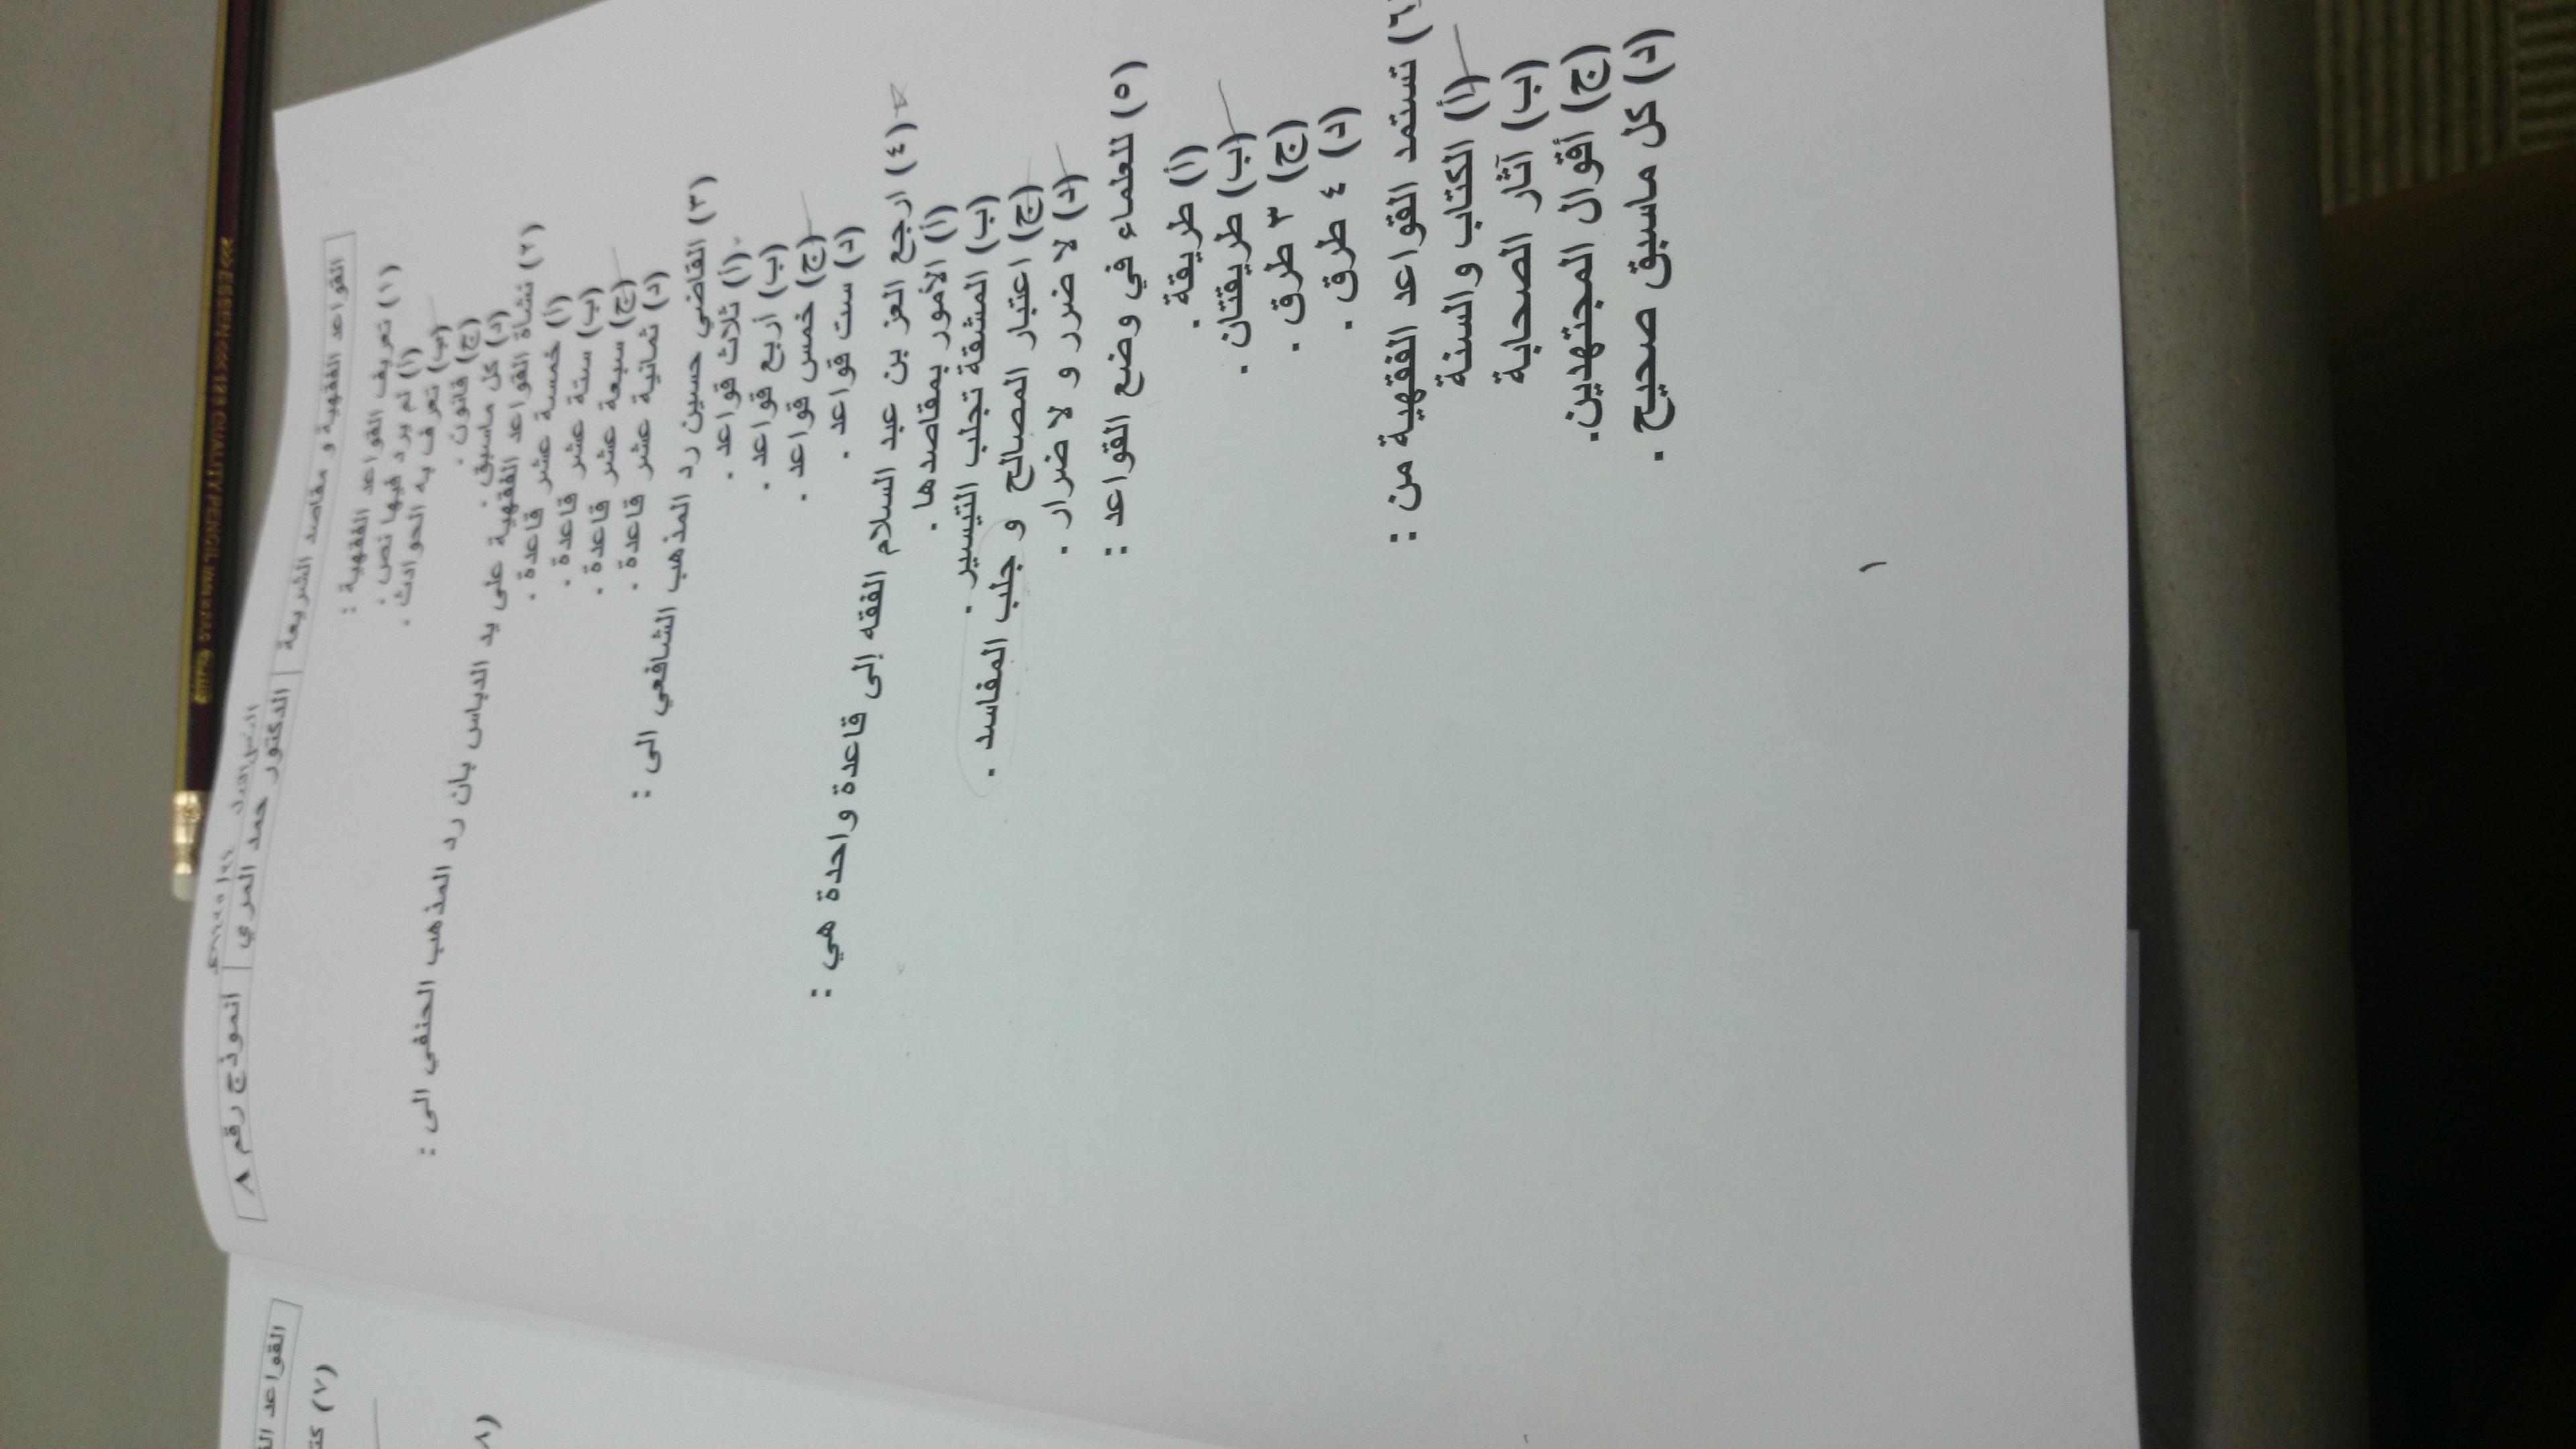 القواعد الفقهية و مقاصد الشريعة | الدكتور حمد المري | انموذج رقم ٨
(١) تعريف القواعد الفقهية :
(أ) لم يرد فيها نص .
(ب) تعرف به الحوادث .
(ج) قانون .
(د) كل ماسبق .
(٢) نشأة القواعد الفقهية على يد الدباس بأن رد المذهب الحنفي الى :
(أ) خمسة عشر قاعدة .
(ب) ستة عشر قاعدة .
(ج) سبعة عشر قاعدة .
(د) ثمانية عشر قاعدة .
(٣) القاضي حسين رد المذهب الشافعي الى :
(أ) ثلاث قواعد .
(ب) أربع قواعد .
(ج) خمس قواعد .
(د) ست قواعد .
(٤) ارجع العز بن عبد السلام الفقه إلى قاعدة واحدة هي :
(أ) الأمور بمقاصدها .
(ب) المشقة تجلب التيسير .
(ج) اعتبار المصالح و جلب المفاسد .
(د) لا ضرر و لا ضرار .
(٥) للعلماء في وضع القواعد :
(أ) طريقة .
(ب) طريقتان .
(ج) ٣ طرق .
(د) ٤ طرق .
(٦) تستمد القواعد الفقهية من :
(أ) الكتاب والسنة
(ب) آثار الصحابة
(ج) أقوال المجتهدين.
(د) كل ماسبق صحيح .
١
القواعد
(٧)
ESSENN 123 QUALITY PENCIL